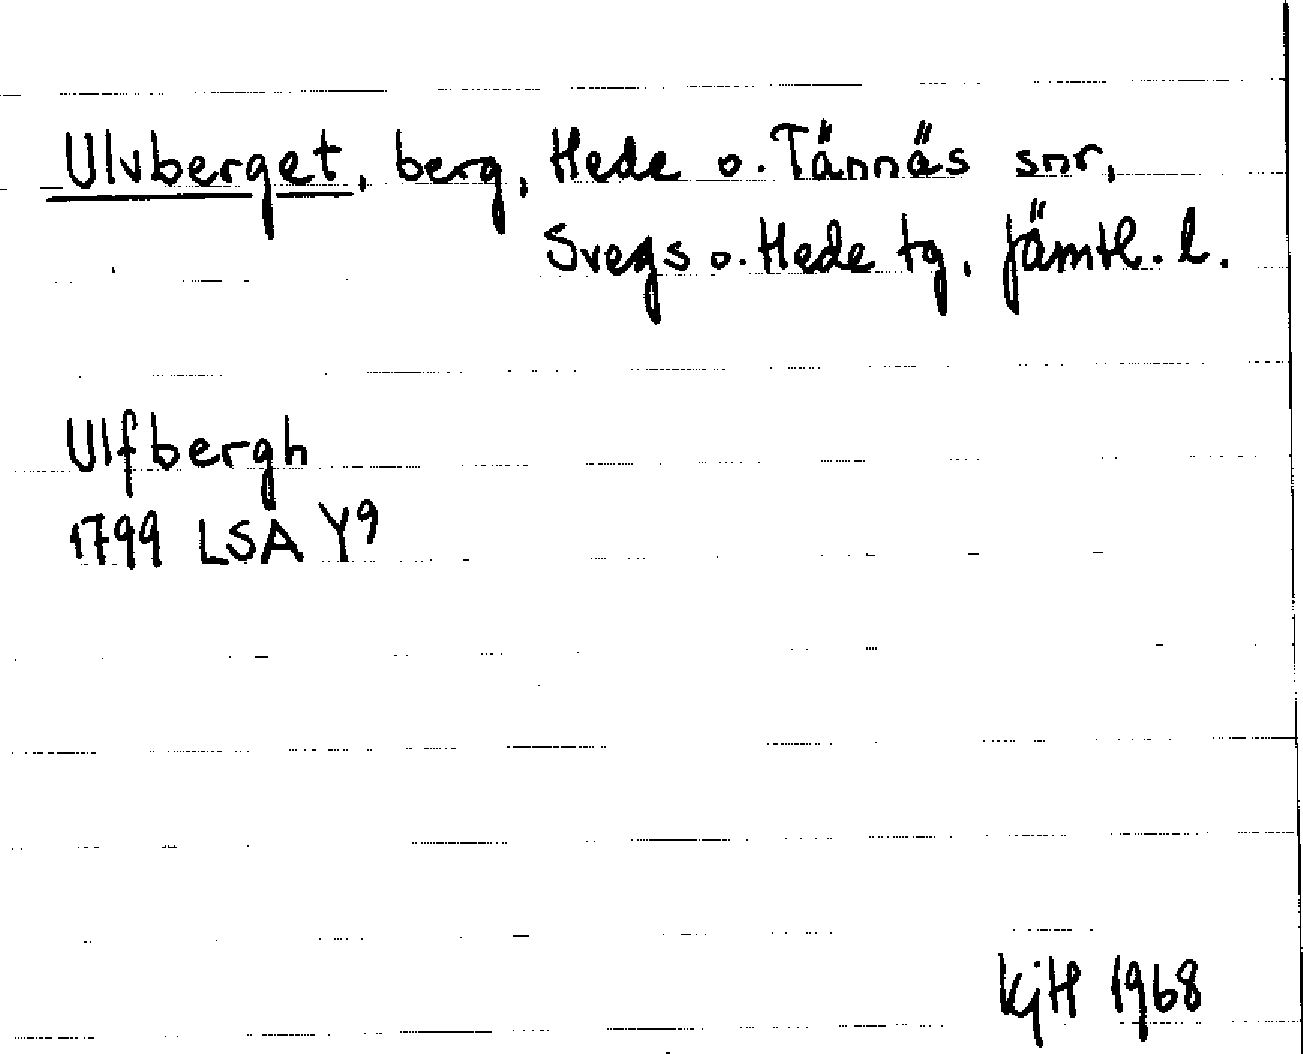 Ulvberget, berg, Hede o. Tännäs snr,
Svegs o. Hede tg, Jämtl. l.
Ulfbergh
1799 LSA Y9
KjH 1968